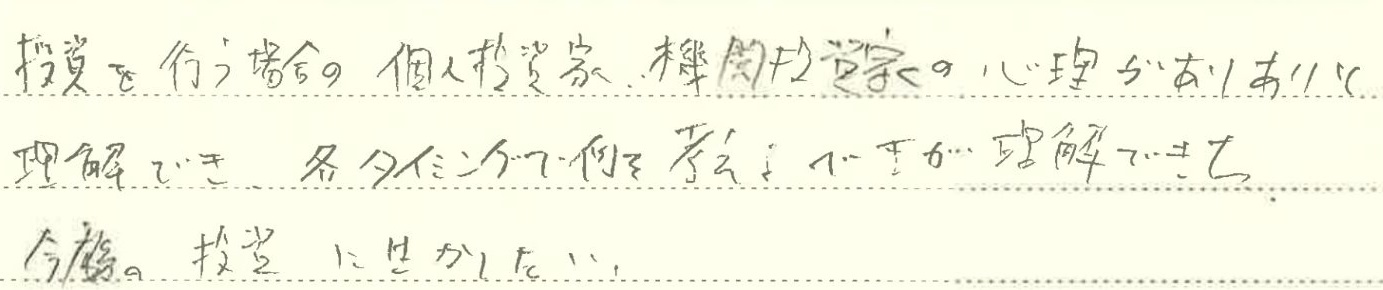 投資を行う場合の個人投資家、機関投資家の心理がありありと
理解でき、各タイミングで何を考えるべきか理解できた。
今後の投資に生かしたい。